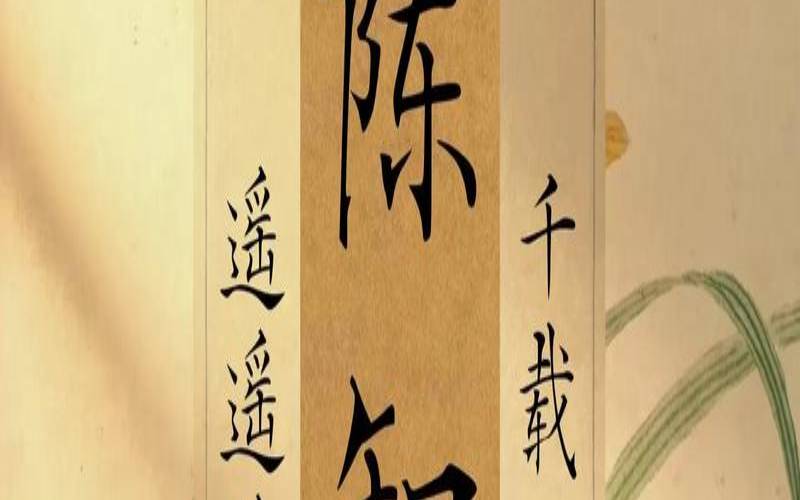 千载
陈
遥遥